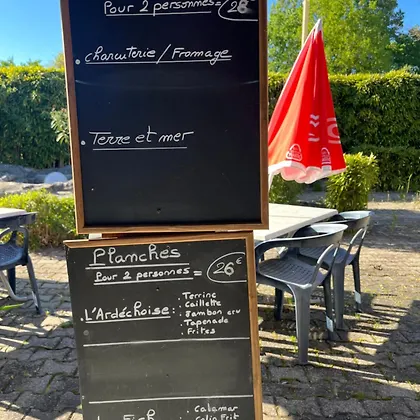 Pour 2 personnes = 28
. Charcuterie / Fromage
. Terre et mer
Planches
Pour 2 personnes = 26€
. L'Ardéchoise : . Terrine
. Caillette
. Jambon cru
. Tapenade
. Frites
. Calamar
Fish : . Colin Frit